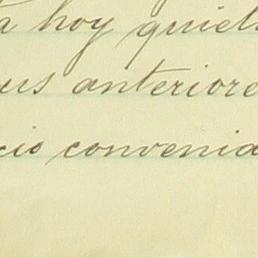 a hoy quiet
us anteriore
cio convenia